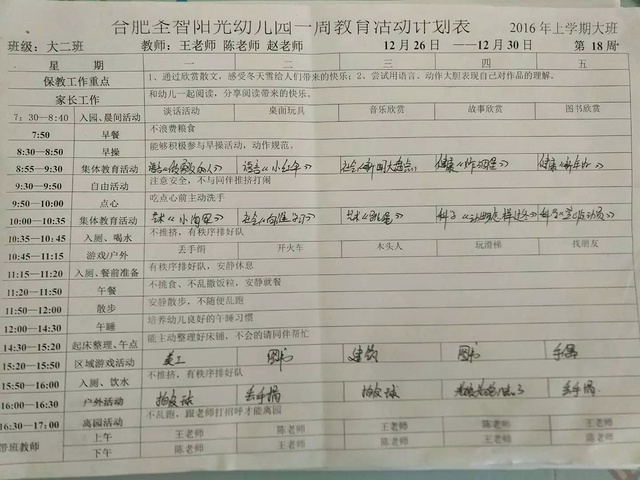 合肥全智阳光幼儿园一周教育活动计划表 2016年上学期大班
班级：大二班 教师：王老师 陈老师 赵老师 12月26日 —12月30日 第18周
星 期 一 二 三 四 五
保教工作重点 1、通过欣赏散文，感受冬天雪给人们带来的快乐；2、尝试用语言、动作大胆表现自己对作品的理解。
家长工作 和幼儿一起阅读，分享阅读带来的快乐。
7：30—8:40 入园、晨间活动 谈话活动 桌面玩具 音乐欣赏 故事欣赏 图书欣赏
7:50 早餐 不浪费粮食
8:30—8:50 早操 能够积极参与早操活动，动作规范。
8:55—9:30 集体教育活动 语言 语言
9:30—9:50 自由活动 注意安全，不与同伴推挤打闹
9:50—10:00 点心 吃点心前主动洗手
10:00—10:35 集体教育活动 科学《动物怎样过冬》
10:35—10:45 入厕、喝水 不推挤，有秩序排好队
10:45—11:15 游戏/户外 丢手绢 开火车 木头人 玩滑梯 找朋友
11:15—11:20 入厕、餐前准备 有秩序排好队，安静休息
11:20—11:50 午餐 不挑食、不乱撒饭粒，安静就餐
11:50—12:00 散步 安静散步，不随便乱跑
12:00—14:30 午睡 培养幼儿良好的午睡习惯
14:30—15:20 起床整理、午点 能主动整理好床铺，不会的请同伴帮忙
15:20—15:50 区域游戏活动 美工 图书 建筑 图书
15:50—16:00 入厕、饮水 不推挤，有秩序排好队
16:00—16:30 户外活动 拍皮球 丢手绢 拍皮球 丢手绢
16:30—17:00 离园活动 不乱跑、跟老师打招呼才能离园
带班教师 上午 王老师 陈老师 王老师 陈老师 王老师
下午 陈老师 王老师 陈老师 王老师 陈老师